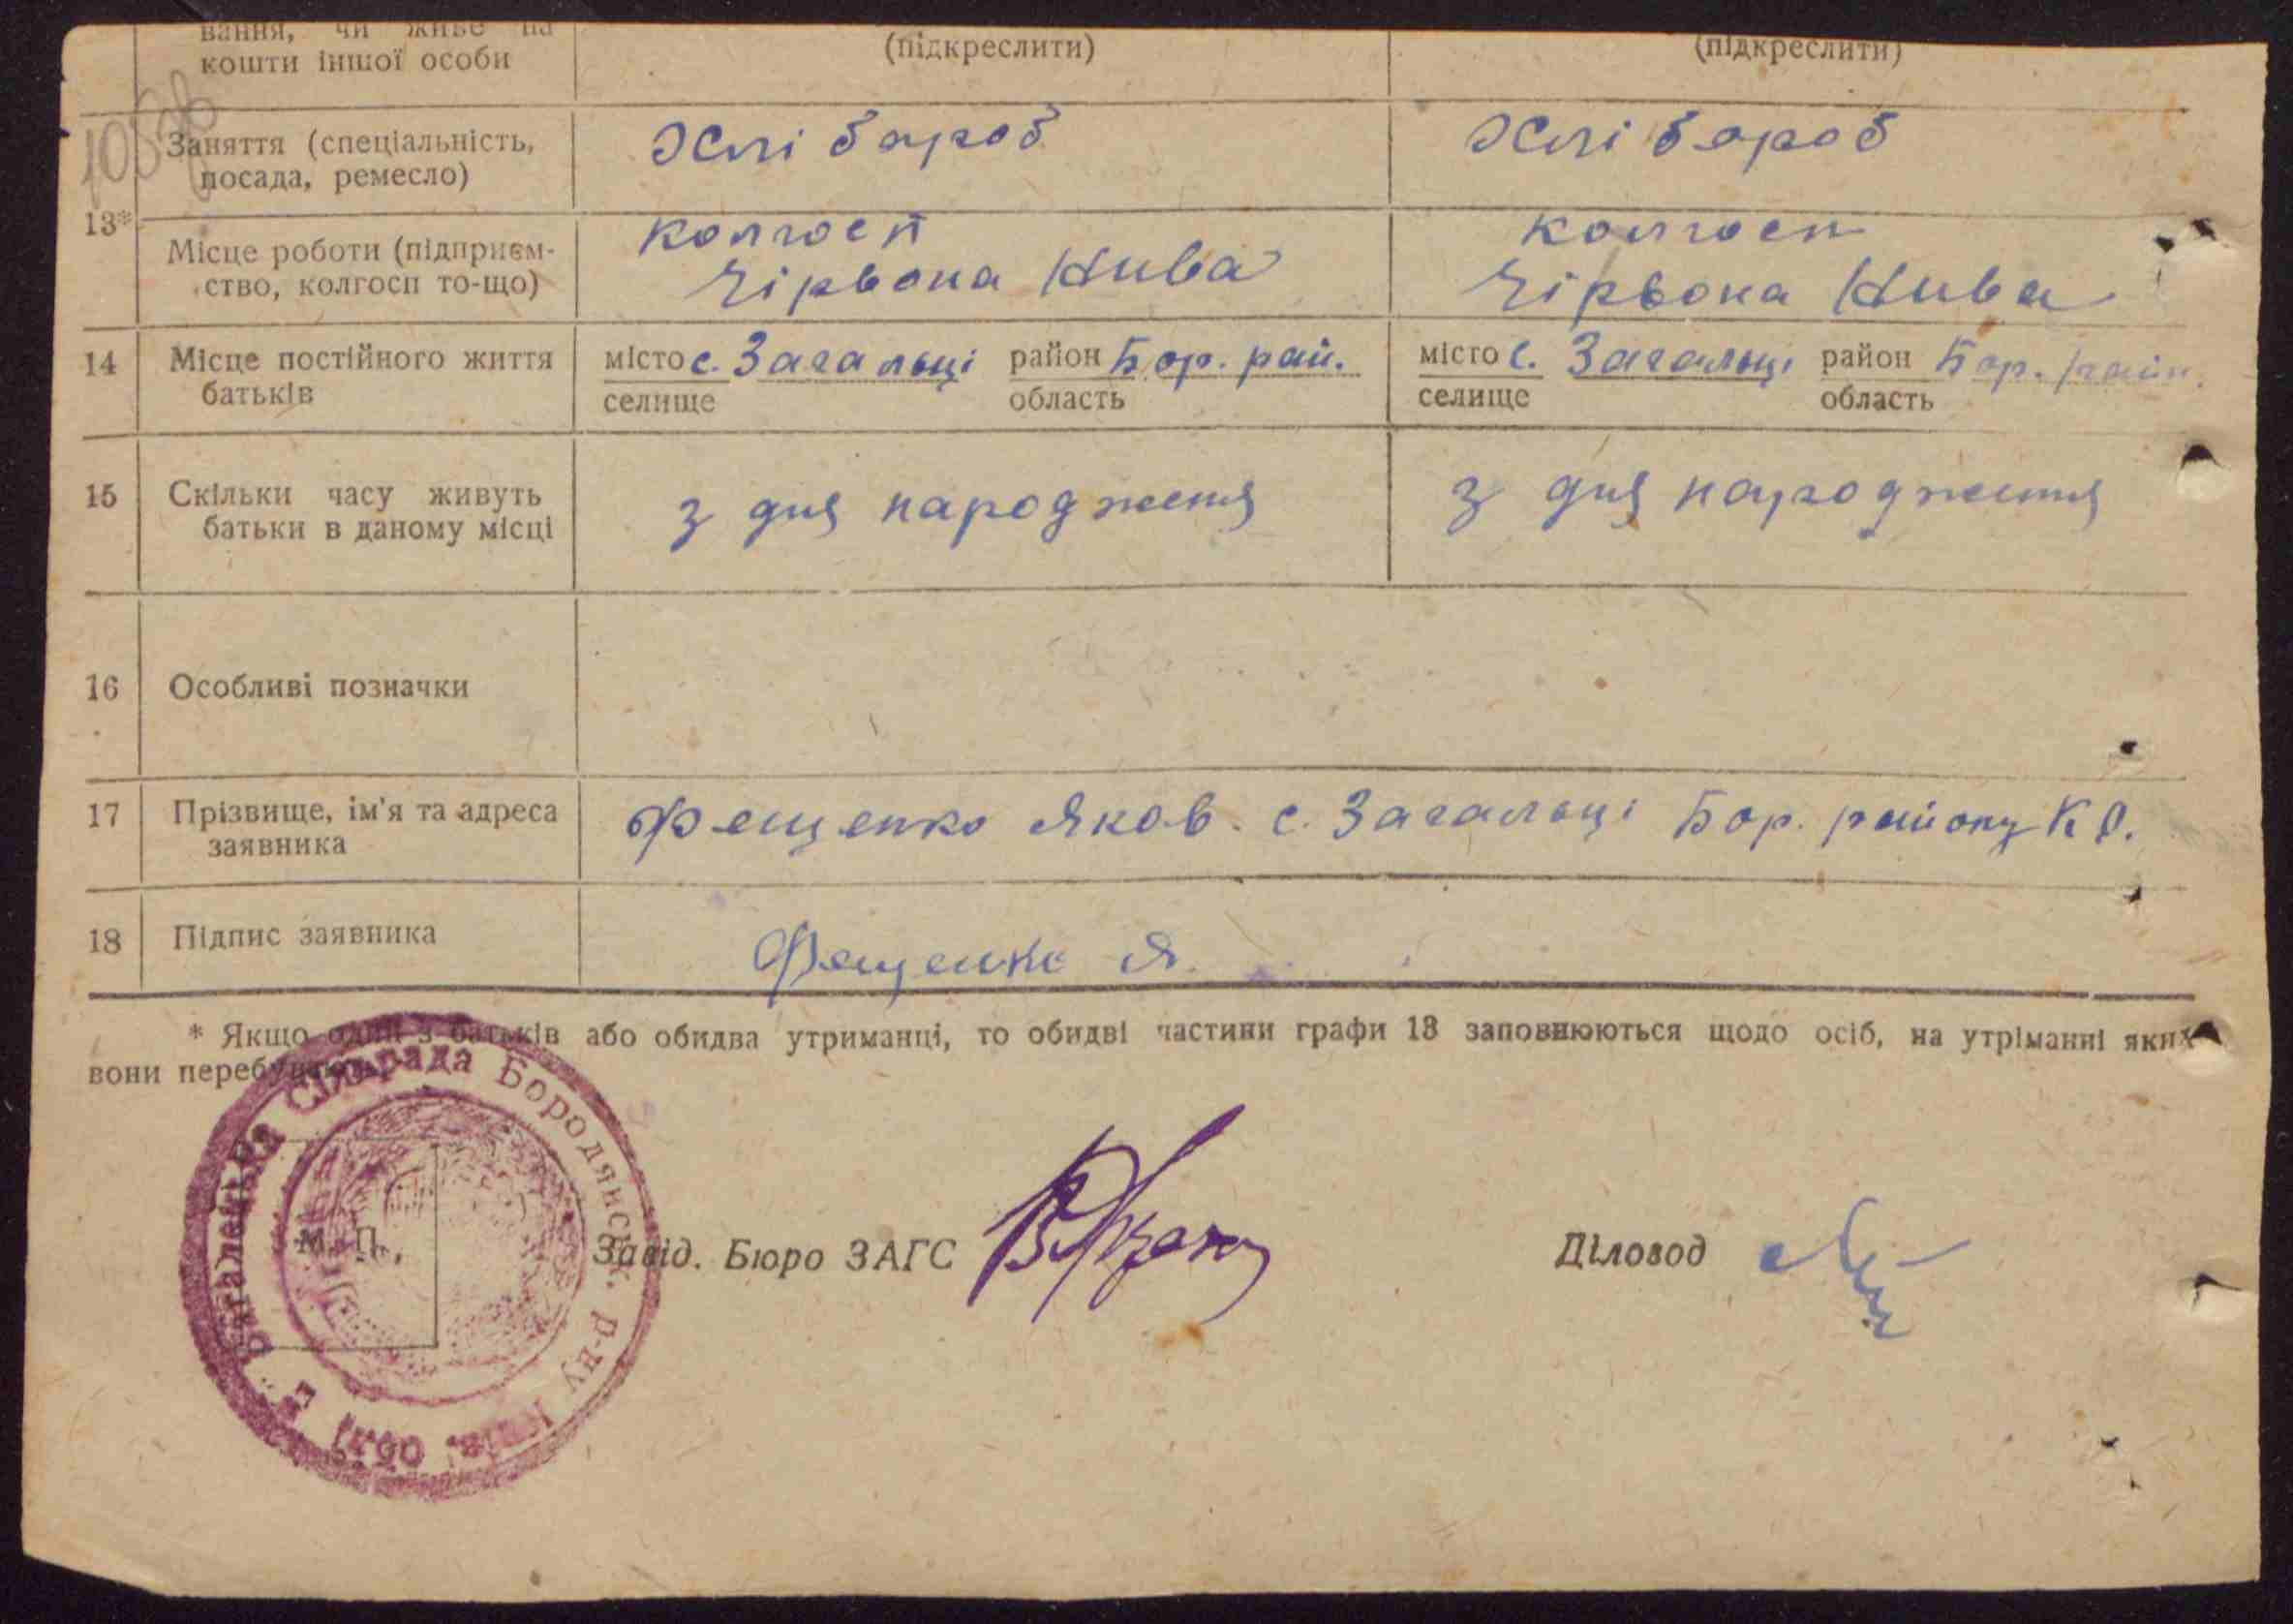 вання, чи живе на
кошти іншої особи
(підкреслити)
(підкреслити)
13*
Заняття (спеціальність,
посада, ремесло)
Хлібороб
Хлібороб
Місце роботи (підприєм-
ство, колгосп то-що)
колгосп
Чірвона Нива
колгосп
Чірвона Нива
14
Місце постійного життя
батьків
місто с. Загальці район Бор. рай.
селище область
місто с. Загальці район Бор. район.
селище область
15
Скільки часу живуть
батьки в даному місці
з дня народження
з дня народження
16
Особливі позначки
17
Прізвище, ім'я та адреса
заявника
Фещенко Яков. с. Загальці Бор. району К. О.
18
Підпис заявника
Фещенко Я.
* Якщо один з батьків або обидва утриманці, то обидві частини графи 13 заповнюються щодо осіб, на утріманні яких
вони перебувають.
Сільрада Бородянськ. р-ну Київ. обл.
М. П.
Завід. Бюро ЗАГС
Діловод